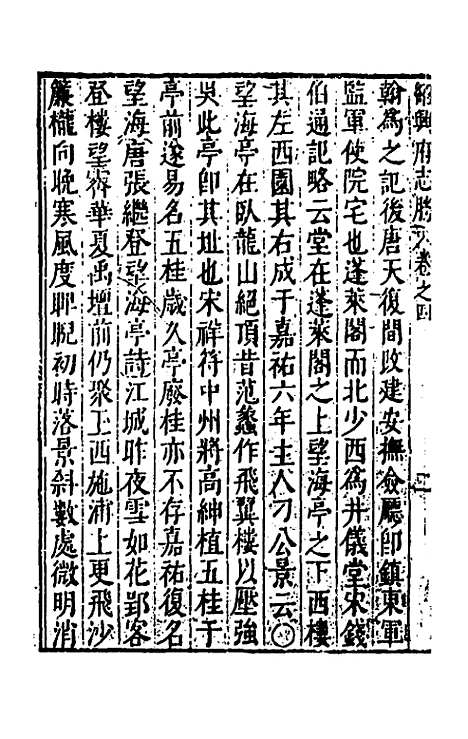 紹興府志勝 卷之四
翰為之記後唐天復間改建安撫僉廳卽鎮東軍
監軍使院宅也蓬萊閣而北少西為井儀堂宋錢
伯通記略云堂在蓬萊閣之上望海亭之下西樓
其左西園其右成于嘉祐六年主人刁公景云○
望海亭在臥龍山絕頂昔范蠡作飛翼樓以壓強
吳此亭卽其址也宋祥符中州將高紳植五桂于
亭前遂易名五桂歲久亭廢桂亦不存嘉祐復名
望海唐張繼登望海亭詩江城昨夜雪如花郢客
登樓望霽華夏禹壇前仍聚玉西施浦上更飛沙
簾櫳向晚寒風度睥睨初時落景斜數處微明消